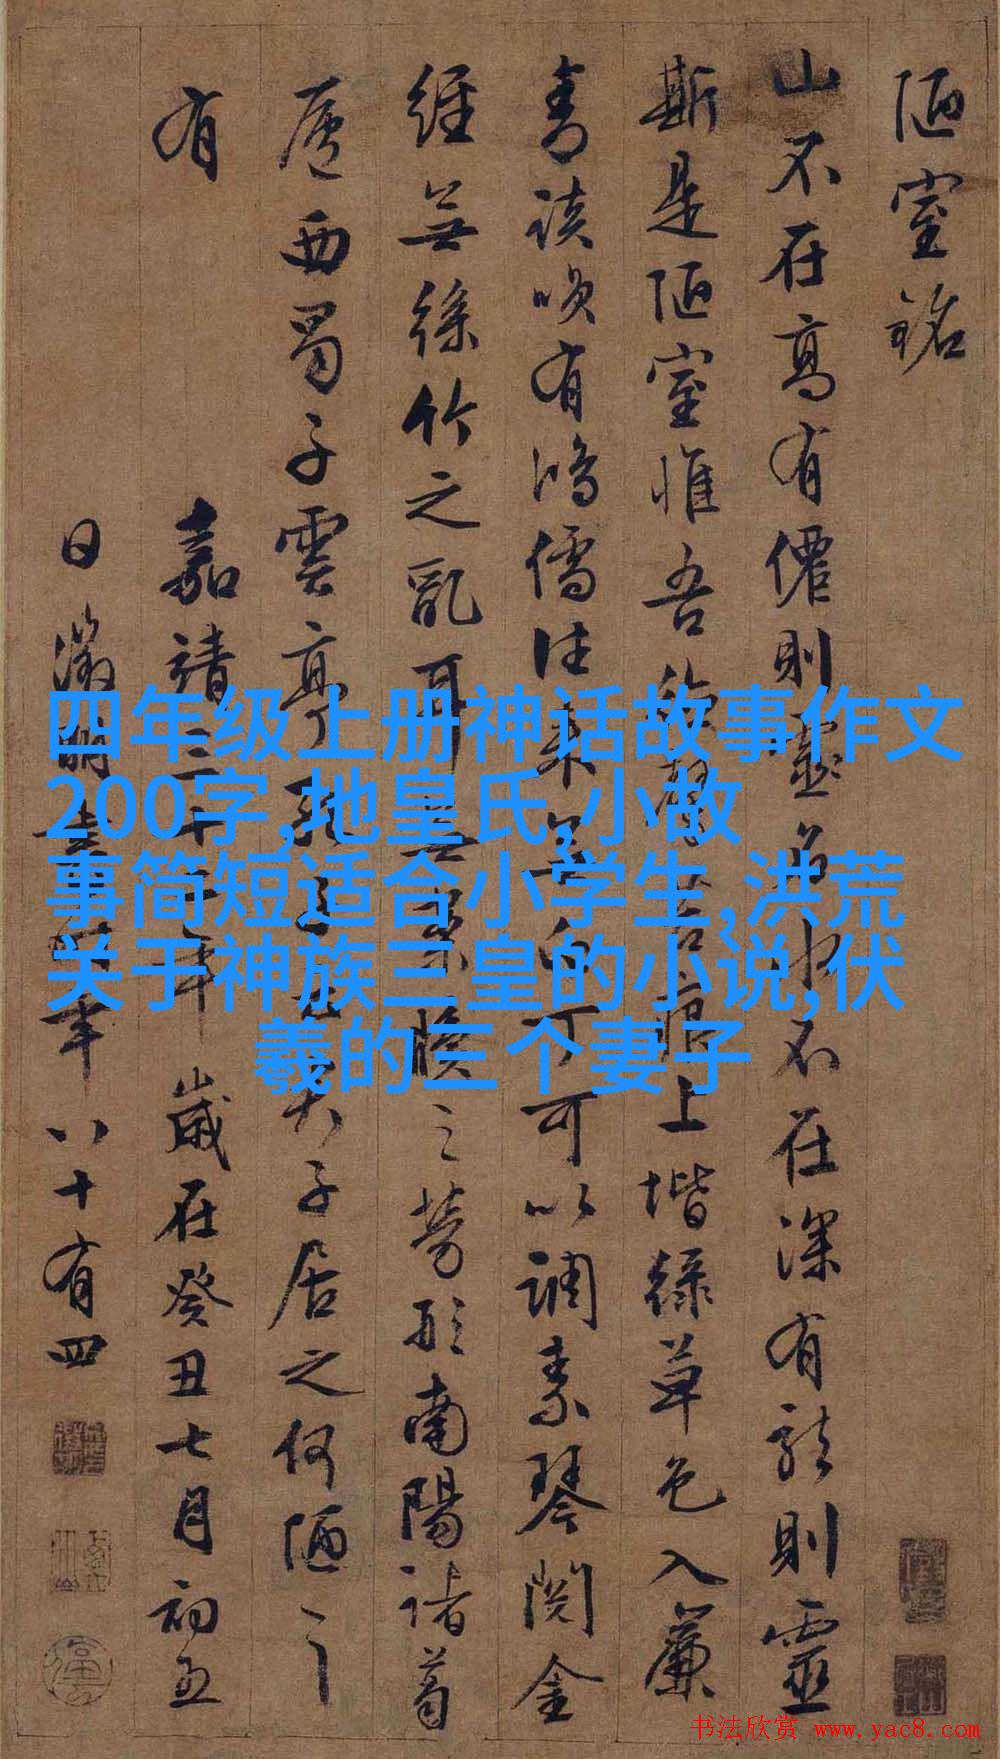 陋室銘
山不在高有僊則靈名水不在深有龍則靈
斯是陋室惟吾德馨苔痕上堦綠草色入簾
青談咲有鴻儒往來無白丁可以調素琴閱金
經無絲竹之亂耳無案牘之勞形南陽諸葛
廬西蜀子雲亭子居之何陋之
有
嘉靖三十二年歲在癸丑七月初五
日徵明書時年八十有四
四年级上册神话故事作文
200字,地皇氏,小故
事简短适合小学生,洪荒
关于神族三皇的小说,伏
羲的三个妻子
书法欣赏 www.yac8.com